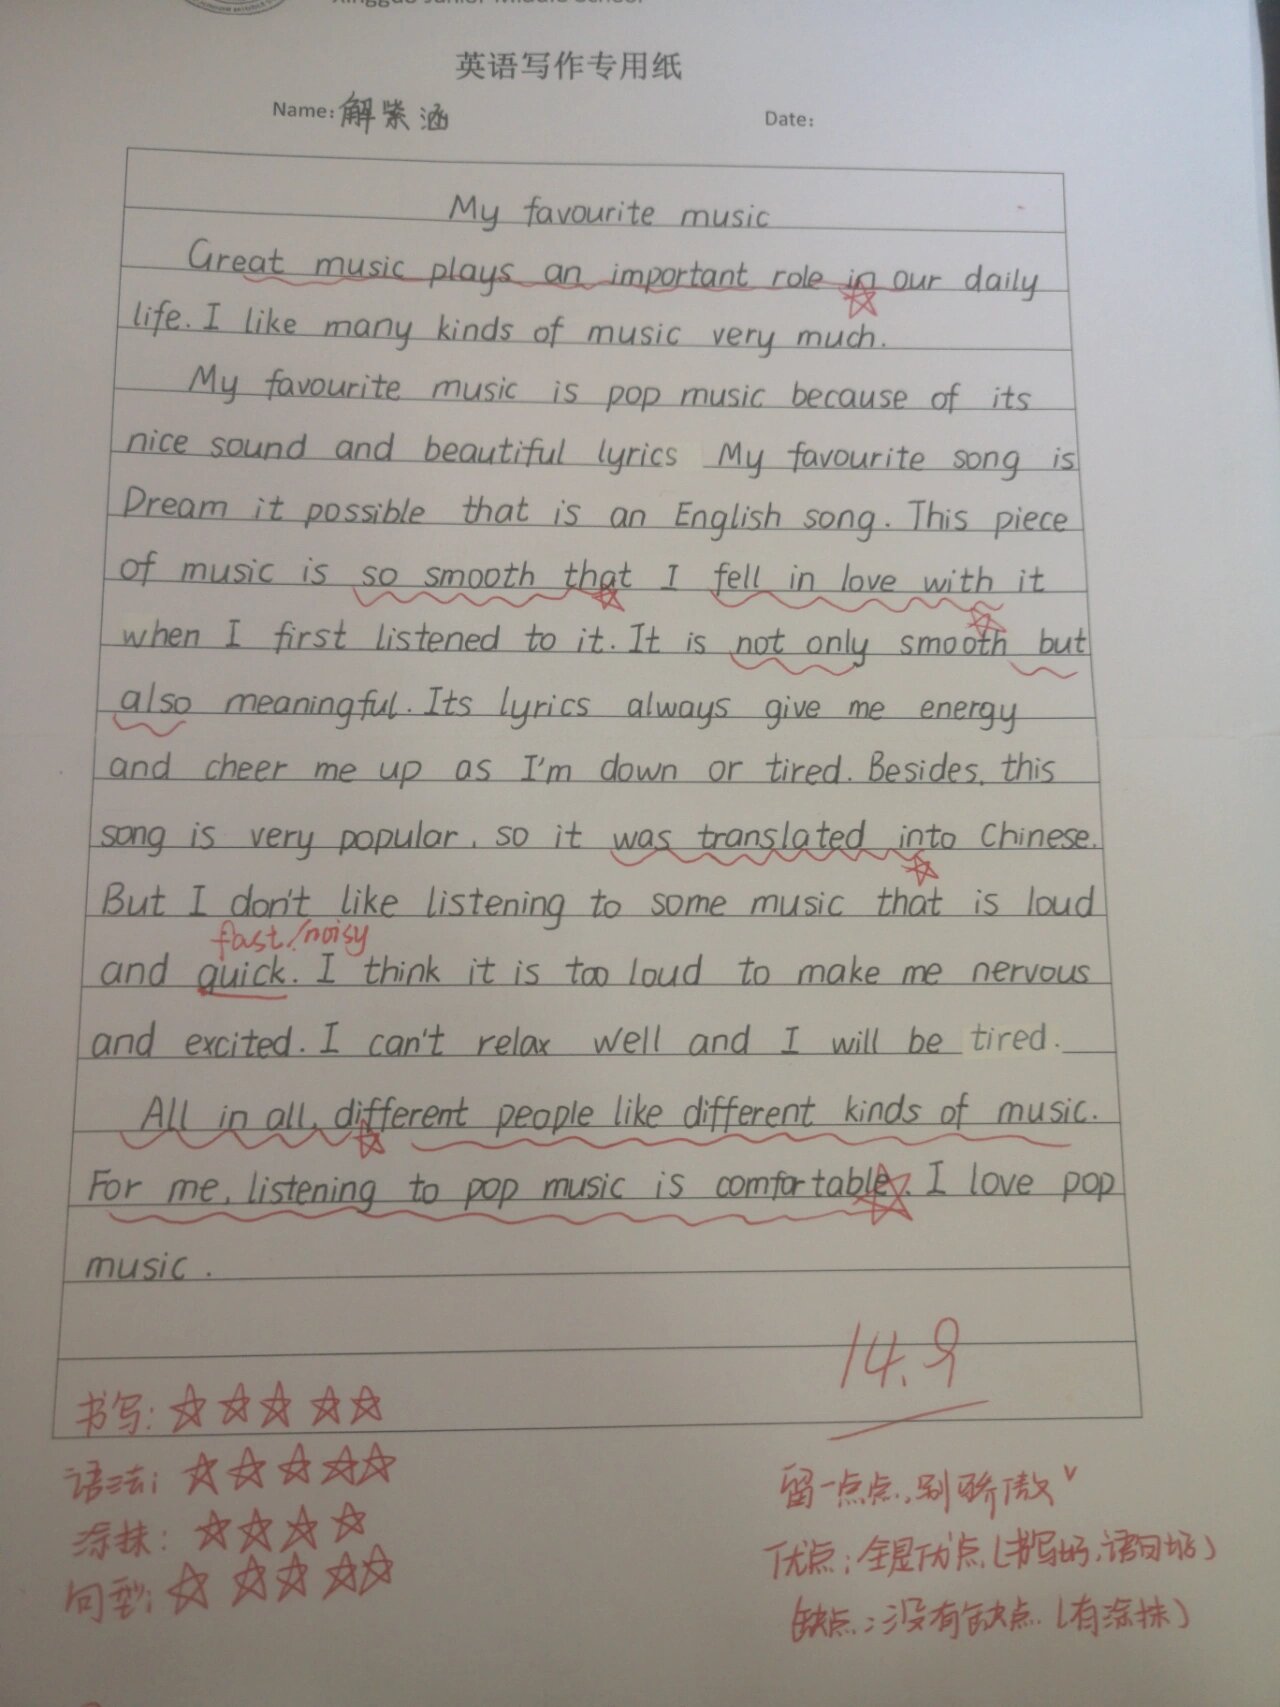 Xingguo Junior Middle School
英语写作专用纸
Name: 解紫涵
Date:
My favourite music
Great music plays an important role in our daily
life. I like many kinds of music very much.
My favourite music is pop music because of its
nice sound and beautiful lyrics My favourite song is
Dream it possible that is an English song. This piece
of music is so smooth that I fell in love with it
when I first listened to it. It is not only smooth but
also meaningful. Its lyrics always give me energy
and cheer me up as I'm down or tired. Besides, this
song is very popular, so it was translated into Chinese.
But I don't like listening to some music that is loud
fast/noisy
and quick. I think it is too loud to make me nervous
and excited. I can't relax well and I will be tired.
All in all, different people like different kinds of music.
For me, listening to pop music is comfortable. I love pop
music.
14.9
书写: ☆☆☆☆☆
语法: ☆☆☆☆☆
涂抹: ☆☆☆☆
句型: ☆☆☆☆☆
留一点点,别骄傲
优点:全是优点(书写好,语句好)
缺点:没有缺点.(有涂抹)